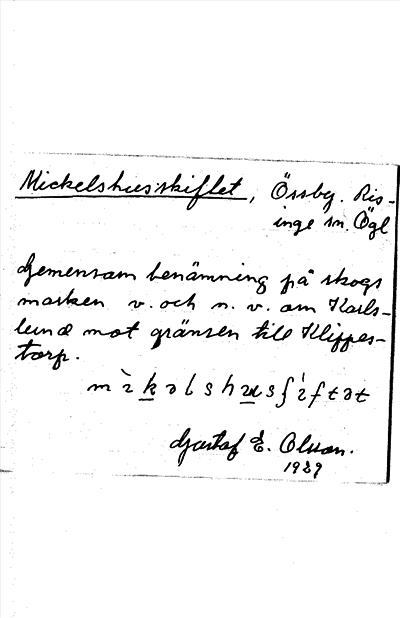 Mickelshusskiftet, Össby. Ris-
inge sn. Ögl
Gemensam benämning på skogs
marken v. och n. v. om Karls-
lund mot gränsen till Klippes-
torp.
Gustaf E. Olsson.
1929